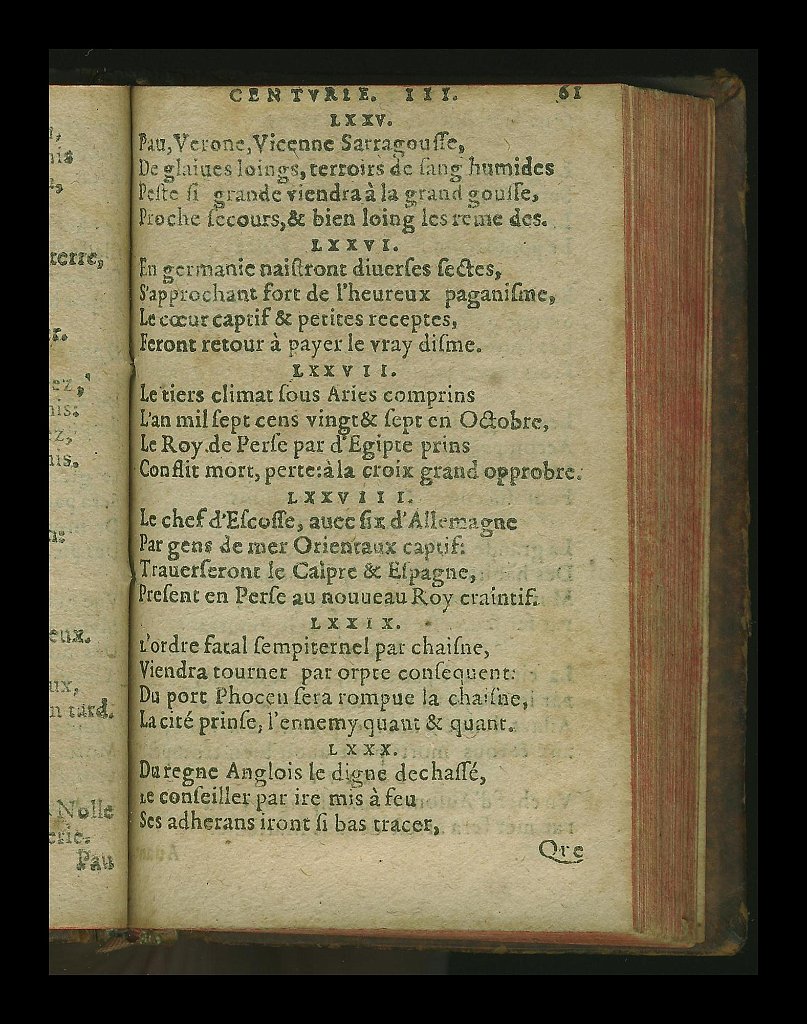 CENTVRIE. III. 61
LXXV.
Pau, Verone, Vicenne Sarragouſſe,
De glaiues loings, terroirs de ſang humides
Peſte ſi grande viendra à la grand gouſſe,
Proche ſecours, & bien loing les reme des.
LXXVI.
En germanie naiſtront diuerſes ſectes,
S'approchant fort de l'heureux paganiſme,
Le cœur captif & petites receptes,
Feront retour à payer le vray diſme.
LXXVII.
Le tiers climat ſous Aries comprins
L'an mil ſept cens vingt & ſept en Octobre,
Le Roy de Perſe par d'Egipte prins
Conflit mort, perte: à la croix grand opprobre.
LXXVIII.
Le chef d'Eſcoſſe, auec ſix d'Allemagne
Par gens de mer Orientaux captif:
Trauerſeront le Calpre & Eſpagne,
Preſent en Perſe au nouueau Roy craintif.
LXXIX.
L'ordre fatal ſempiternel par chaiſne,
Viendra tourner par orpte conſequent:
Du port Phocen ſera rompue la chaiſne,
La cité prinſe, l'ennemy quant & quant.
LXXX.
Du regne Anglois le digne dechaſſé,
Le conſeiller par ire mis à feu
Ses adherans iront ſi bas tracer,
Qre
terre,
eux.
tard.
Nolle
Pau